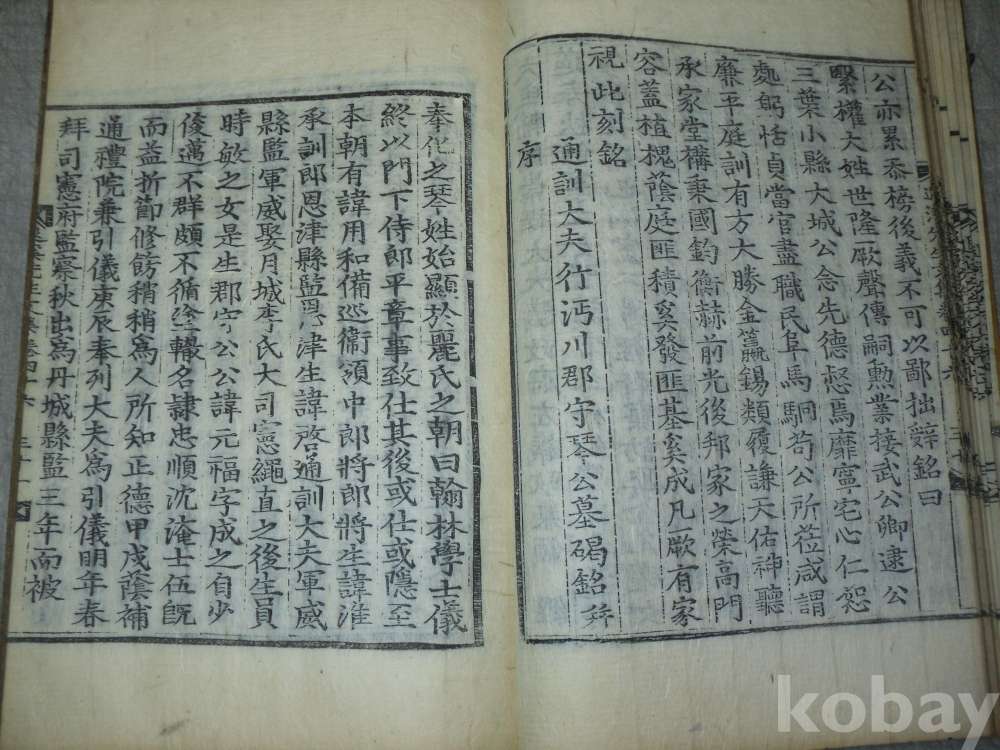 公亦累忝榜後義不可以鄙拙辭銘曰
繄權大姓世隆厥聲傳嗣勳業接武公卿逮公
三葉小縣大城公念先德惄焉靡寧宅心仁恕
處躬恬貞當官盡職民阜馬駉苟公所莅咸謂
廉平庭訓有方大勝金籯錫類履謙天佑神聽
承家堂構秉國鈞衡赫前光後邦家之榮高門
容蓋植槐蔭庭匪積奚發匪基奚成凡厥有家
視此刻銘
通訓大夫行沔川郡守琴公墓碣銘幷
序
奉化之琴姓始顯於麗氏之朝曰翰林學士儀
終以門下侍郎平章事致仕其後或仕或隱至
本朝有諱用和備巡衛領中郎將郎將生諱淮
承訓郎恩津縣監恩津生諱啓通訓大夫軍威
縣監軍威娶月城李氏大司憲繩直之後生員
時敏之女是生郡守公公諱元福字成之自少
俊邁不群頗不循塗轍名隷忠順沈淹士伍旣
而益折節修飭稍稍爲人所知正德甲戌蔭補
通禮院兼引儀庚辰奉列大夫爲引儀明年春
拜司憲府監察秋出爲丹城縣監三年而被
kobay